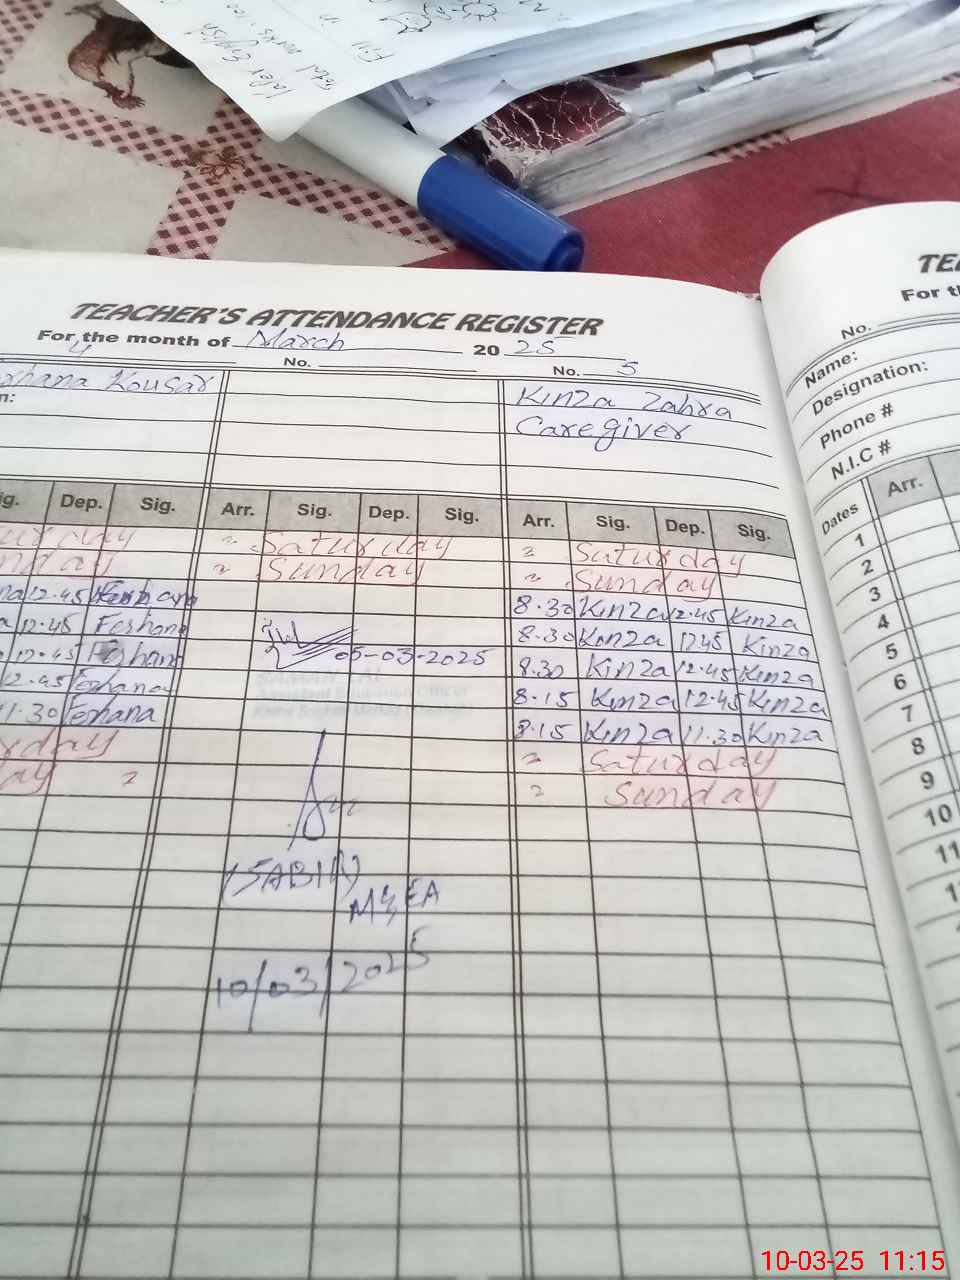 Paper English
Total marks:100
Fill in
TEACHER'S ATTENDANCE REGISTER
For the month of March 2025
4 No. No. 5
rhana Kousar Kinza Zahra
n: Caregiver
ig. Dep. Sig. Arr. Sig. Dep. Sig. Arr. Sig. Dep. Sig.
urday Saturday Saturday
nday Sunday Sunday
na 12.45 Ferhana 8.30 Kinza 12.45 Kinza
a 12.45 Ferhana 8.30 Kinza 1245 Kinza
12.45 Ferhana 05-03-2025 8.30 Kinza 12.45 Kinza
12.45 Ferhana 8.15 Kinza 12.45 Kinza
11.30 Ferhana 8.15 Kinza 11.30 Kinza
rday Saturday
ay Sunday
(SABIR)
M&EA
10/03/2025
TEA
For th
No.
Name:
Designation:
Phone #
N.I.C #
Dates Arr.
1
2
3
4
5
6
7
8
9
10
11
10-03-25 11:15